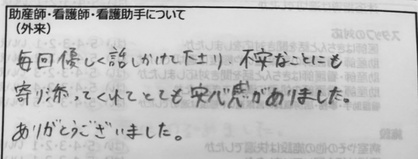 助産師・看護師・看護助手について
(外来)
毎回優しく話しかけて下さり、不安なことにも
寄り添ってくれてとても安心感がありました。
ありがとうございました。